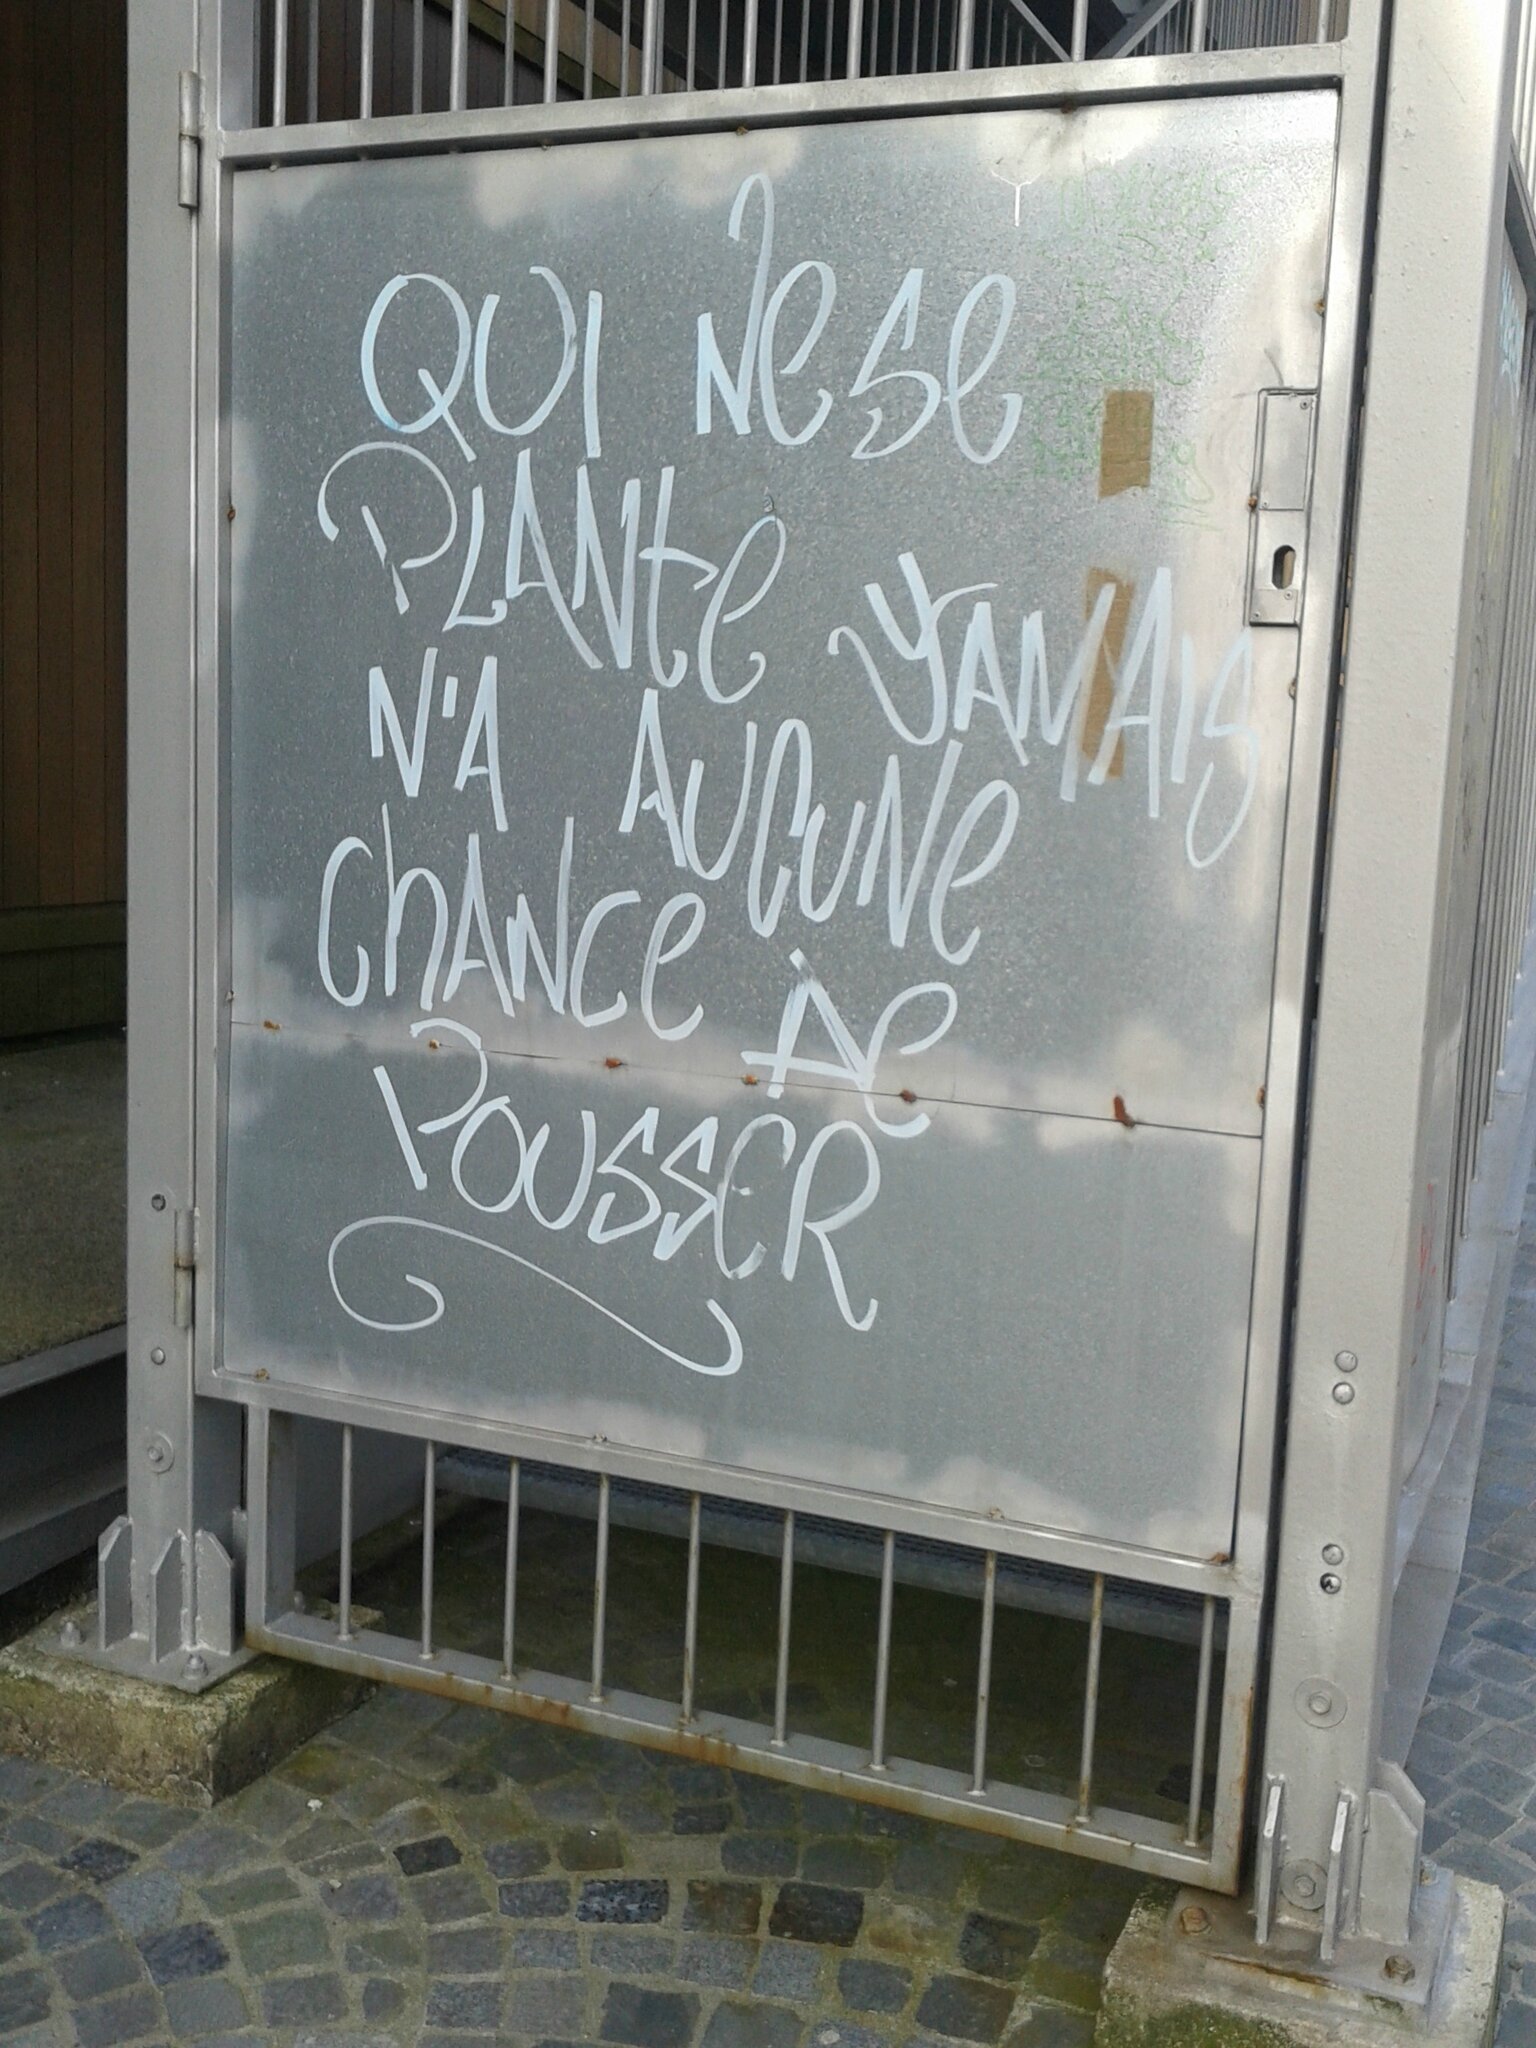 QUI Ne Se
PLANte YAMAIS
N'A AUCUNe
ChANce de
POUSSER